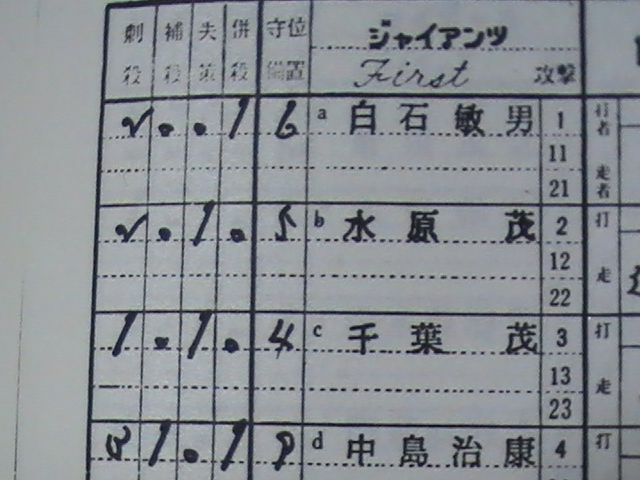 刺 補 失 併 守位 ジャイアンツ
殺 殺 策 殺 備置 First 攻撃
1 6 a 白石敏男 1 打者
11
21 走者
1 5 b 水原 茂 2 打
12 走
22
1 1 4 c 千葉 茂 3 打
13 走
23
1 1 d 中島治康 4 打